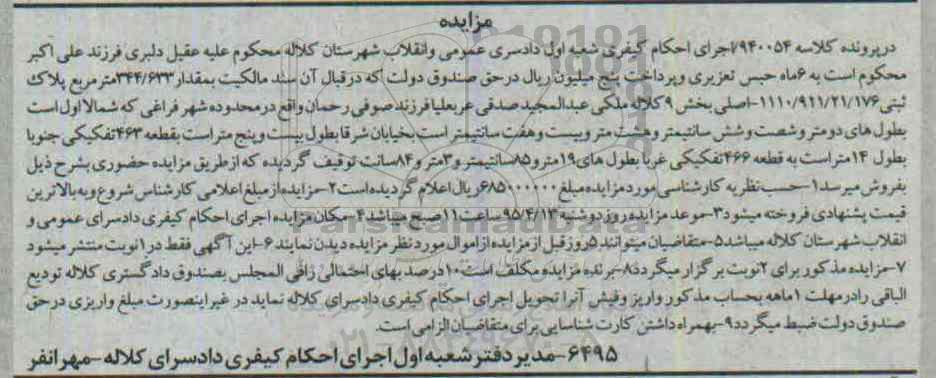 مزایده
درپرونده کلاسه ۹۴۰۰۵۴/اجرای احکام کیفری شعبه اول دادسری عمومی وانقلاب شهرستان کلاله محکوم علیه عقیل دلبری فرزند علی اکبر
محکوم است به ۶ماه حبس تعزیری وپرداخت پنج میلیون ریال درحق صندوق دولت که درقبال آن سند مالکیت بمقدار۳۴۴/۶۳۳متر مربع پلاک
ثبتی ۱۱۱۰/۹۱۱/۲۱/۱۷۶-اصلی بخش ۹کلاله ملکی عبدالمجیدصدقی عربعلیا فرزندصوفی رحمان واقع درمحدوده شهر فراغی که شمالا اول است
بطول های دومتر وشصت وشش سانتیمتر وهشت متر وبیست وهفت سانتیمتر است بخیابان شرقا بطول بیست وپنج متر است بقطعه ۴۶۳تفکیکی جنوبا
بطول ۱۴متر است به قطعه ۴۶۶تفکیکی غربا بطول های۱۹مترو۸۵سانتیمتر و۳متر و۸۴سانت توقیف گردیده که ازطریق مزایده حضوری بشرح ذیل
بفروش میرسد۱-حسب نظریه کارشناسی مورد مزایده مبلغ ۶۸۵۰۰۰۰۰۰ریال اعلام گردیده است۲-مزایده ازمبلغ اعلامی کارشناس شروع وبه بالاترین
قیمت پشنهادی فروخته میشود۳-موعد مزایده روز دوشنبه ۹۵/۴/۱۳ساعت ۱۱صبح میباشد۴-مکان مزایده اجرای احکام کیفری دادسرای عمومی و
انقلاب شهرستان کلاله میباشد۵-متقاضیان میتوانند ۵روز قبل ازمزایده ازاموال مورد نظر مزایده دیدن نمایند۶-این آگهی فقط در ۱نوبت منتشر میشود
۷-مزایده مذکور برای ۲نوبت برگزار میگردد۸-برنده مزایده مکلف است۱۰درصد بهای احتمالی رافی المجلس بصندوق دادگستری کلاله تودیع
الباقی رادرمهلت ۱ماهه بحساب مذکور واریز وفیش آنرا تحویل اجرای احکام کیفری دادسرای کلاله نماید در غیراینصورت مبلغ واریزی درحق
صندوق دولت ضبط میگردد۹-بهمراه داشتن کارت شناسایی برای متقاضیان الزامی است.
۶۴۹۵-مدیردفترشعبه اول اجرای احکام کیفری دادسرای کلاله-مهرانفر